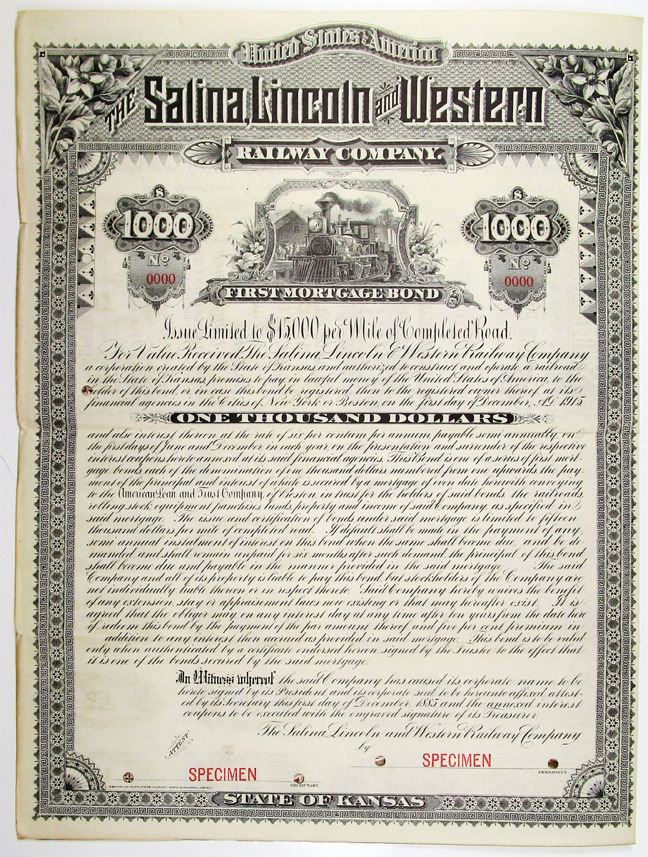 United States of America
THE Salina, Lincoln and Western
RAILWAY COMPANY
$ 1000
No
0000
$ 1000
No
0000
FIRST MORTGAGE BOND
Issue Limited to $15,000 per Mile of Completed Road.
For Value Received The Salina Lincoln & Western Railway Company
a corporation created by the State of Kansas and authorized to construct and operate a railroad
in the State of Kansas, promises to pay in lawful money of the United States of America to the
holder of this bond, or in case this bond be registered, then to the registered owner thereof at its
financial agencies in the Cities of New York or Boston, on the first day of December, A.D. 1915
ONE THOUSAND DOLLARS
and also interest thereon at the rate of six per centum per annum payable semi annually, on
the first days of June and December in each year, on the presentation and surrender of the respective
interest coupons hereto annexed at its said financial agencies. This Bond is one of a series of first mort-
gage bonds each of the denomination of one thousand dollars numbered from one upwards the pay
ment of the principal and interest of which is secured by a mortgage of even date herewith conveying
to the American Loan and Trust Company, of Boston in trust for the holders of said bonds the railroads
rolling stock equipment franchises lands, property and income of said company as specified in
said mortgage. The issue and certification of bonds under said mortgage is limited to fifteen
thousand dollars per mile of completed road. If default shall be made in the payment of any
semi annual instalment of interest on this bond when the same shall become due and be de
manded and shall remain unpaid for six months after such demand the principal of this bond
shall become due and payable in the manner provided in the said mortgage. The said
Company and all of its property is liable to pay this bond but stockholders of the Company are
not individually liable thereon or in respect thereto. Said Company hereby waives the benefit
of any extension, stay or appraisement laws now existing or that may hereafter exist. It is
agreed that the obligor may on any interest day at any time after ten years from the date here
of redeem this bond by the payment of the par amount thereof and per cent premium in
addition to any interest then accrued as provided in said mortgage. This bond is to be valid
only when authenticated by a certificate endorsed hereon signed by the Trustee to the effect that
it is one of the bonds secured by the said mortgage.
In Witness whereof the said Company has caused its corporate name to be
hereto signed by its President and its corporate seal to be hereunto affixed attest-
ed by its Secretary this first day of December 1885 and the annexed interest
coupons to be executed with the engraved signature of its Treasurer.
The Salina, Lincoln and Western Railway Company
ATTEST
by
SPECIMEN
SPECIMEN
SECRETARY
PRESIDENT
STATE OF KANSAS